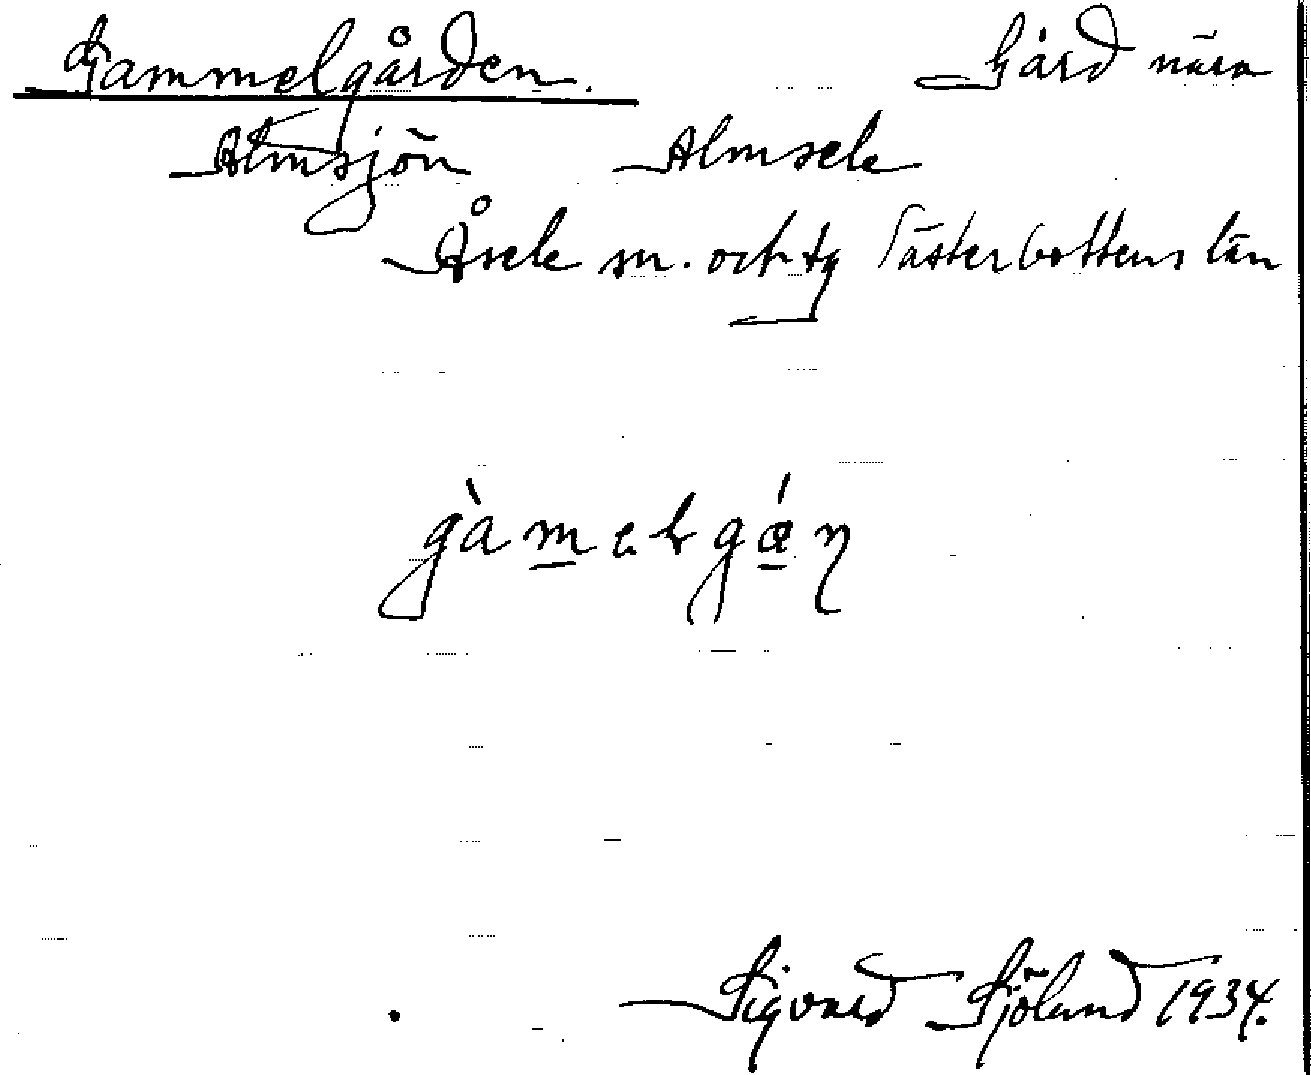 Gammelgården. Gård nära
Almsjön Almsele
Åsele sn. och tg Västerbottens län
Sigvard Sjölund 1934.